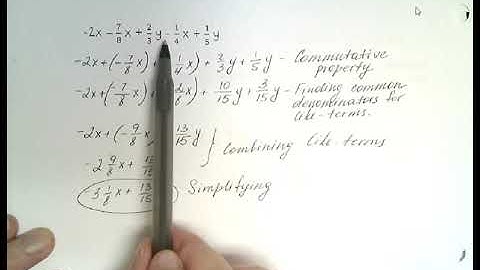 -2x - 7/8 x + 2/3 y - 1/4 x + 1/5 y
-2x + (-7/8 x) + 1/4 x) + 2/3 y + 1/5 y - Commutative property
-2x + (-7/8 x) + 2/8 x) + 10/15 y + 3/15 y - Finding common denominators for like-terms.
-2x + (-9/8 x) 13/15 y } Combining like-terms
-2 9/8 x + 13/15
-3 1/8 x + 13/15 Simplifying